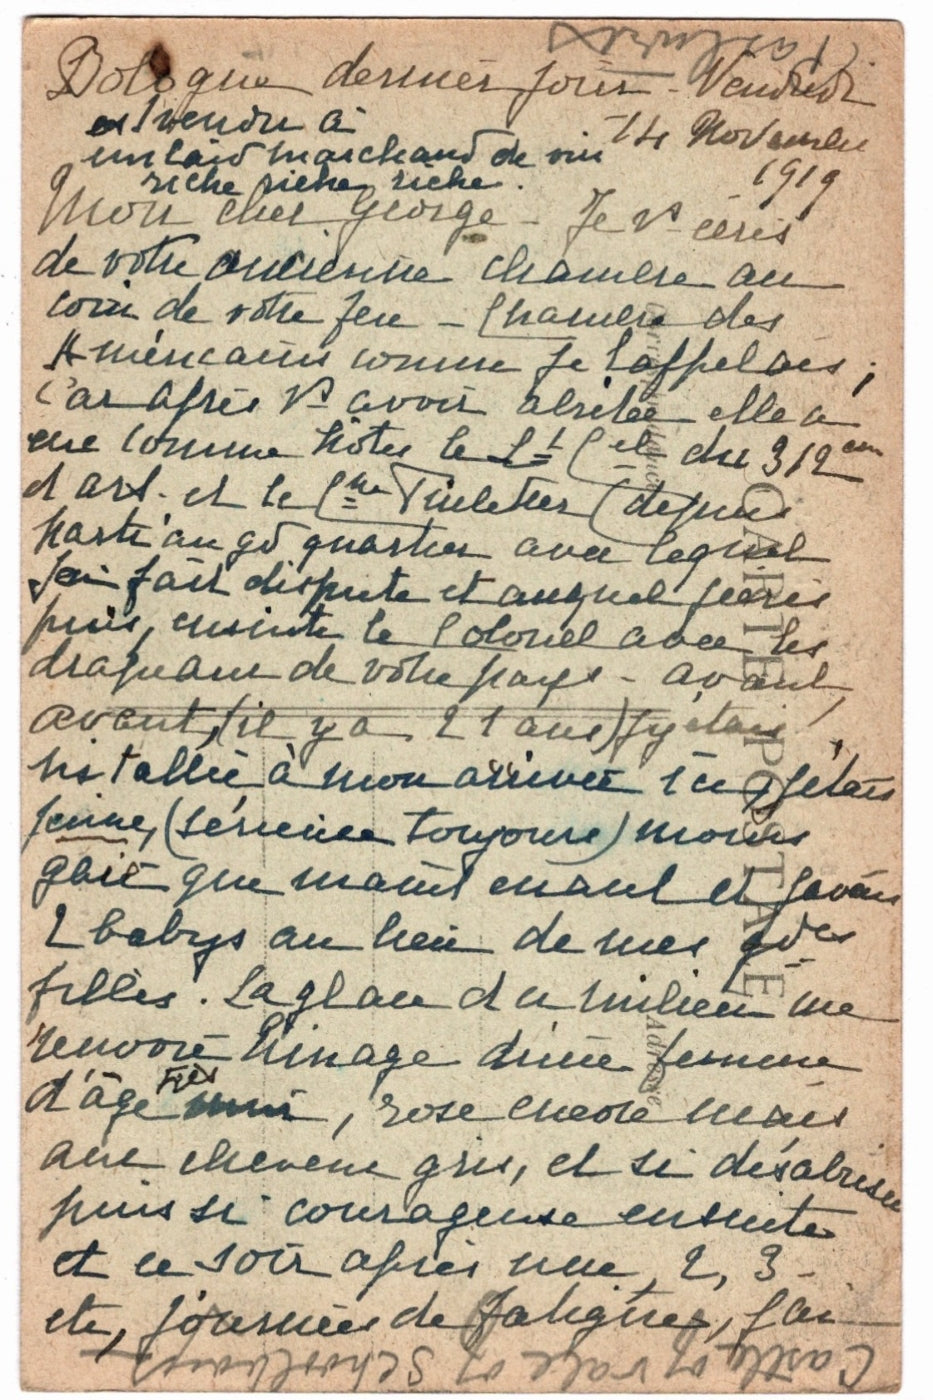 Bologne dernier jour - Vendredi
est vendu à
14 Novembre
un laid marchand de vin
1919
riche riche riche.
Mon cher George - Je vs écris
de votre ancienne chambre au
coin de votre feu - Chambre des
Américains comme je l'appelais;
car après Vs avoir abritée elle a
eue comme hôtes le Lt Cel du 312em
d'art. et le Cne (depuis
parti au gd quartier avec lequel
j'ai fait dispute et auquel j'écris
puis, ensuite le Colonel avec les
drapeaux de votre pays - avant,
avant, (il y a 21 ans) j'y étais
installée à mon arrivée ici, j'étais
jeune, (sérieuse toujours) moins
gaie que maintenant et j'avais
2 babys au lieu de mes gdes
filles. La glace du milieu me
renvoie l'image d'une femme
d'âge très mûr, rose encore mais
aux cheveux gris, et si désabusée
puis si courageuse ensuite
et ce soir après une, 2, 3
etc, journées de fatigues, j'ai
CARTE POSTALE
Correspondance
Adresse
Castle of vale of